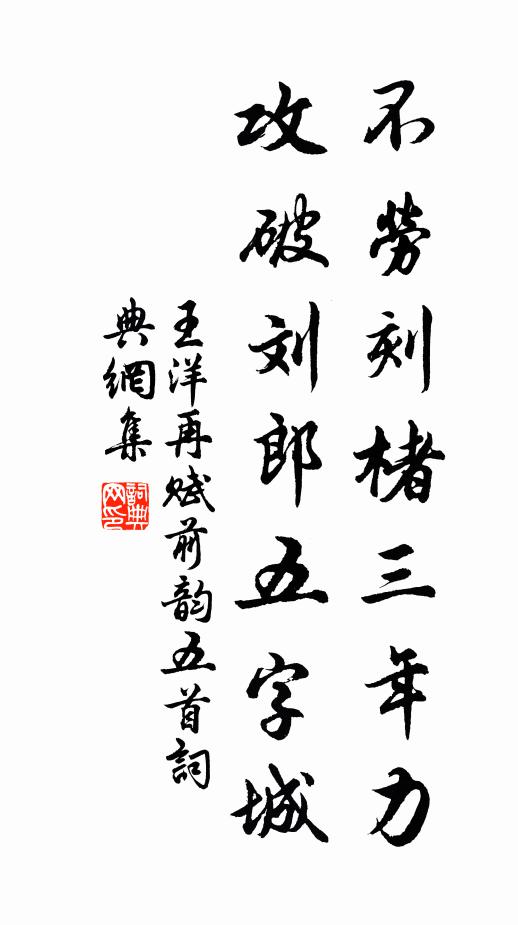 不勞刻楮三年力
攻破刘郎五字城
王洋再赋前韵五首詞
典網集
詞典网印